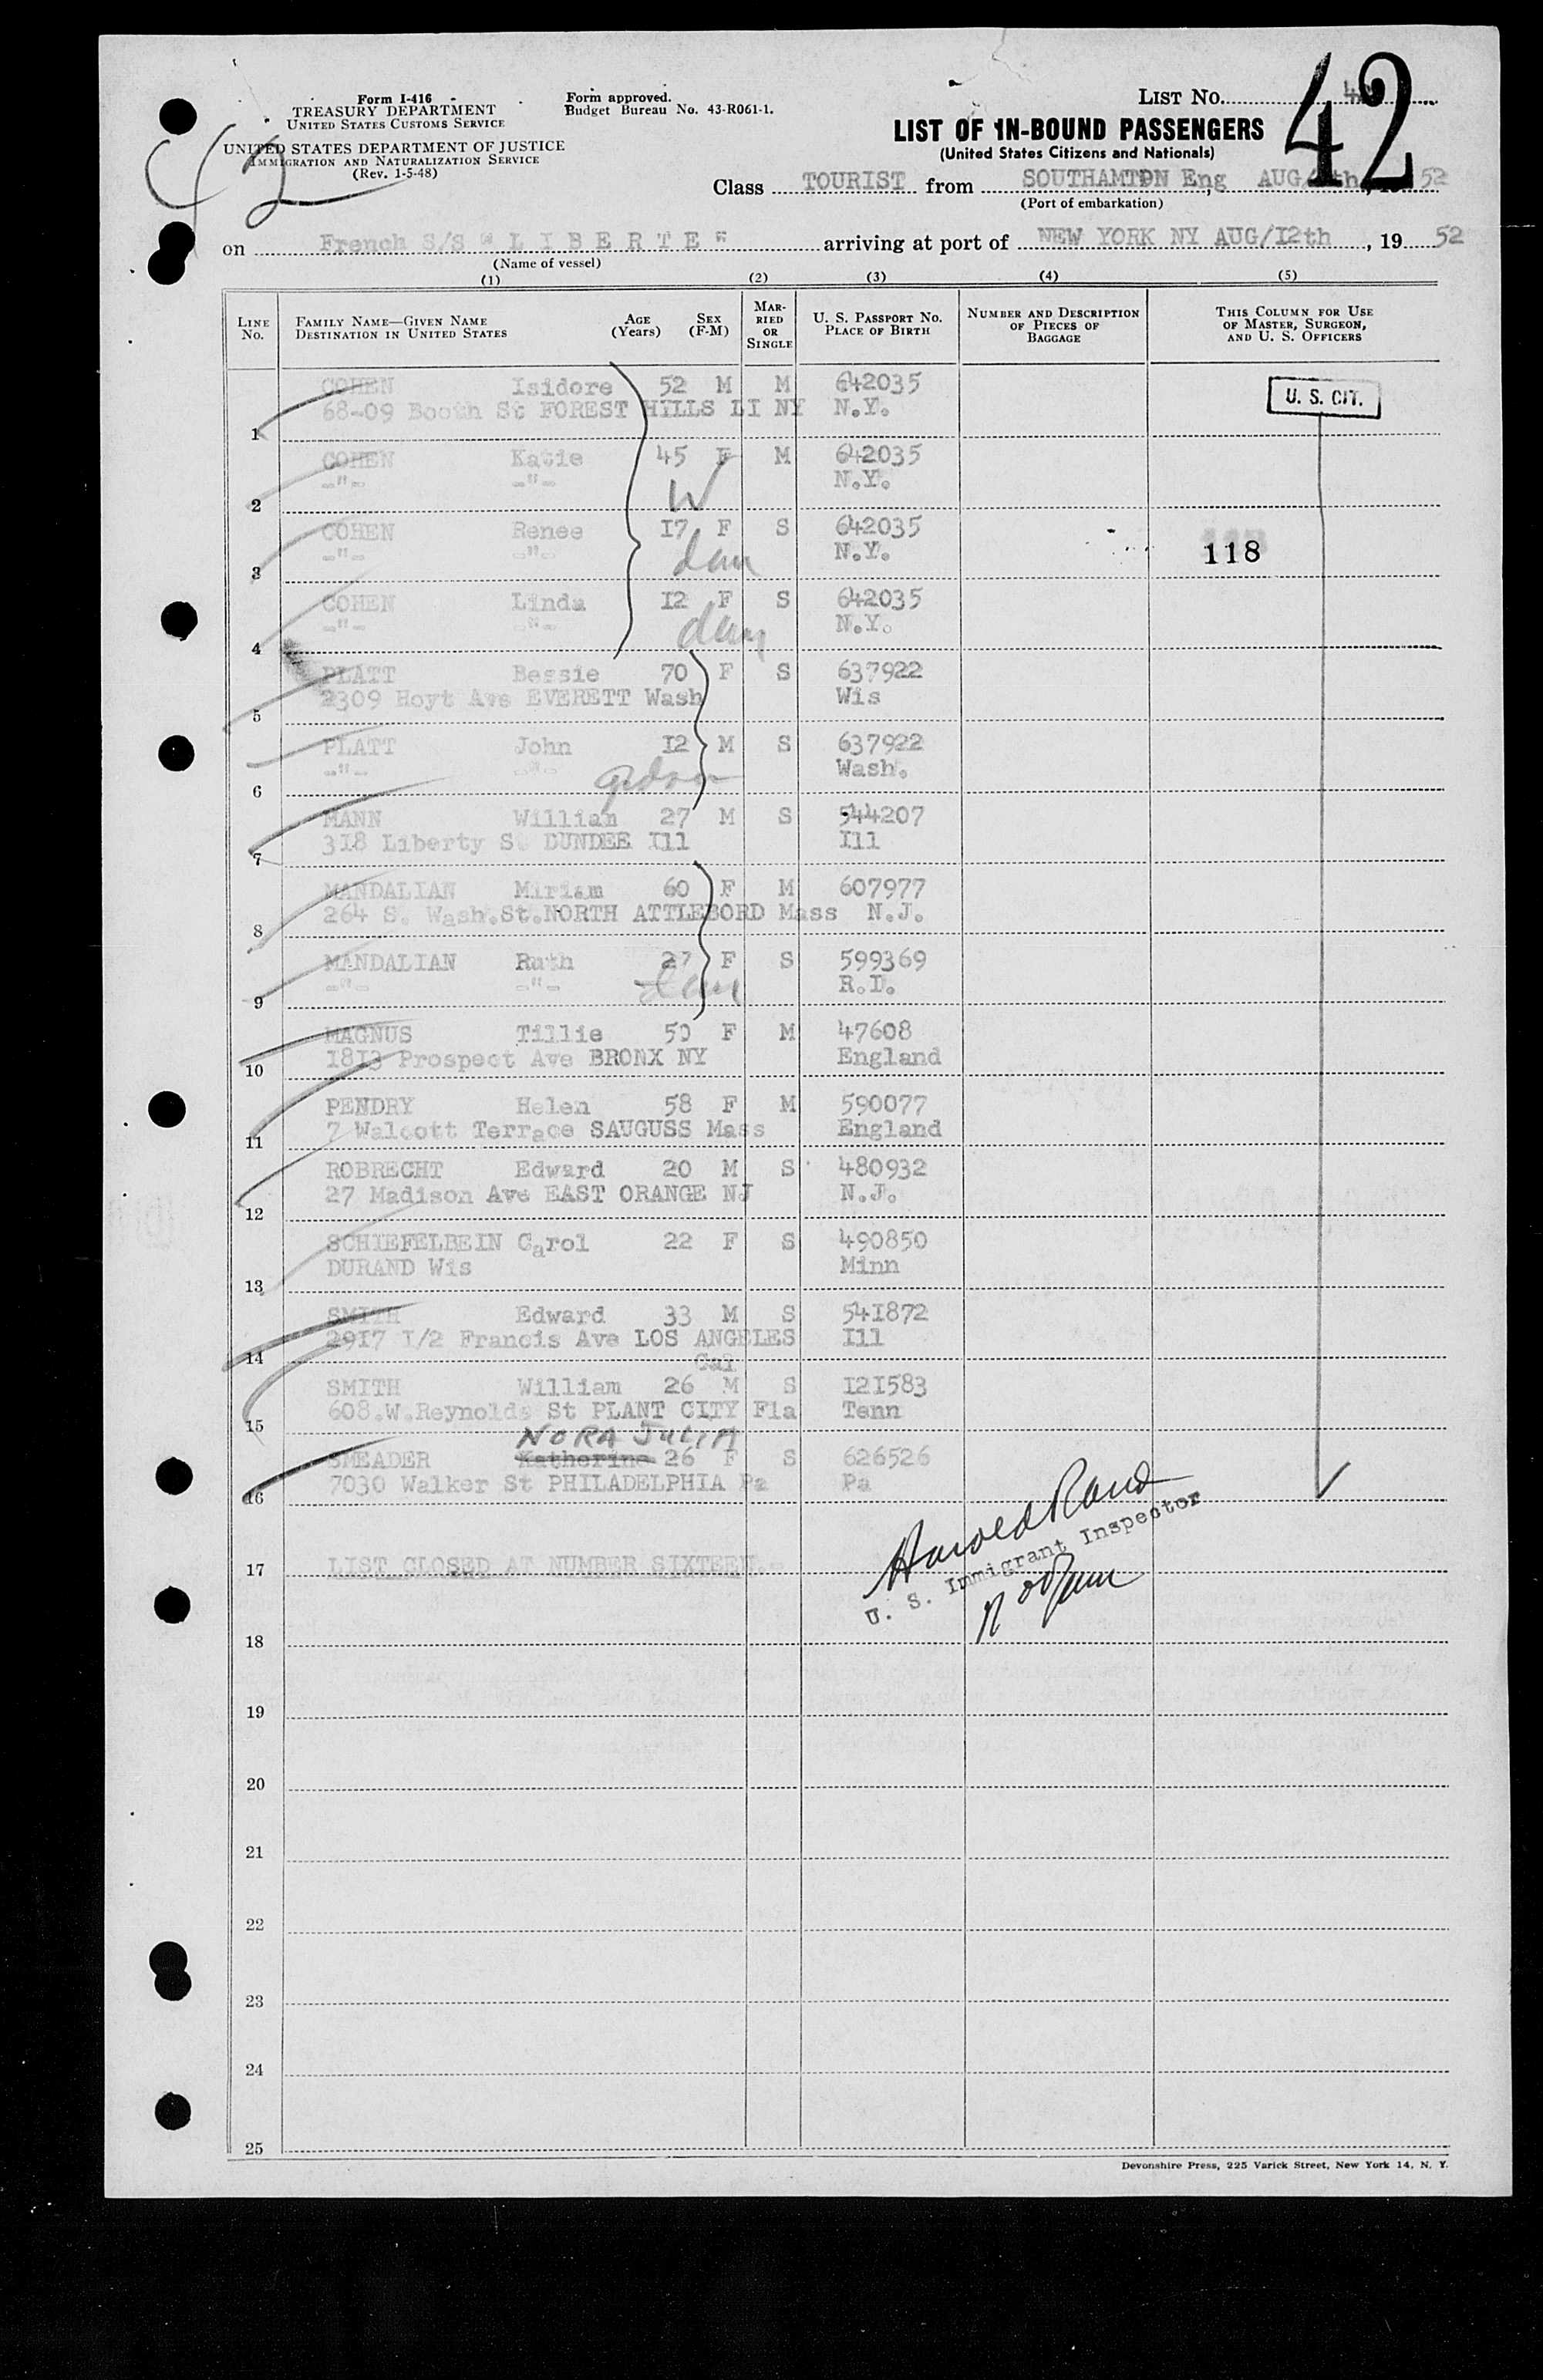 Form I-416
TREASURY DEPARTMENT
UNITED STATES CUSTOMS SERVICE
UNITED STATES DEPARTMENT OF JUSTICE
IMMIGRATION AND NATURALIZATION SERVICE
(Rev. 1-5-48)
42
Form approved.
Budget Bureau No. 43-R061-1.
LIST NO.
42
LIST OF IN-BOUND PASSENGERS
(United States Citizens and Nationals)
Class TOURIST from SOUTHAMTPN Eng, AUG/ th, 19 52
(Port of embarkation)
on French S/S " L I B E R T E " arriving at port of NEW YORK NY AUG/I2th, 19 52
(Name of vessel)
(1) (2) (3) (4) (5)
LINE No. FAMILY NAME—GIVEN NAME DESTINATION IN UNITED STATES AGE (Years) SEX (F-M) MARRIED OR SINGLE U. S. PASSPORT NO. PLACE OF BIRTH NUMBER AND DESCRIPTION OF PIECES OF BAGGAGE THIS COLUMN FOR USE OF MASTER, SURGEON, AND U. S. OFFICERS
COHEN Isidore 52 M M 642035 U. S. CIT.
1 68-09 Booth St FOREST HILLS LI NY N.Y.
COHEN Katie 45 F M 642035
2 -"- -"- W N.Y.
COHEN Renee I7 F S 642035
3 -"- -"- dau N.Y. 118
COHEN Linda I2 F S 642035
4 -"- -"- dau N.Y.
PLATT Bessie 70 F S 637922
5 2309 Hoyt Ave EVERETT Wash Wis
PLATT John I2 M S 637922
6 -"- -"- gdson Wash.
MANN William 27 M S 544207
7 3I8 Liberty St DUNDEE Ill Ill
MANDALIAN Miriam 60 F M 607977
8 264 S. Wash.St.NORTH ATTLEBORD Mass N.J.
MANDALIAN Ruth 27 F S 599369
9 -"- -"- dau R.I.
MAGNUS Tillie 50 F M 47608
10 I8I3 Prospect Ave BRONX NY England
PENDRY Helen 58 F M 590077
11 7 Walcott Terrace SAUGUSS Mass England
ROBRECHT Edward 20 M S 480932
12 27 Madison Ave EAST ORANGE NJ N.J.
SCHIEFELBEIN Carol 22 F S 490850
13 DURAND Wis Minn
SMITH Edward 33 M S 54I872
14 29I7 I/2 Francis Ave LOS ANGELES Ill
Cal
SMITH William 26 M S I2I583
15 608.W.Reynolds St PLANT CITY Fla Tenn
NORA JULIA
SMEADER Katherine 26 F S 626526
16 7030 Walker St PHILADELPHIA Pa Pa
17 LIST CLOSED AT NUMBER SIXTEEN.-
Harold Rand
U. S. Immigrant Inspector
18
19
20
21
22
23
24
25
Devonshire Press, 225 Varick Street, New York 14, N. Y.